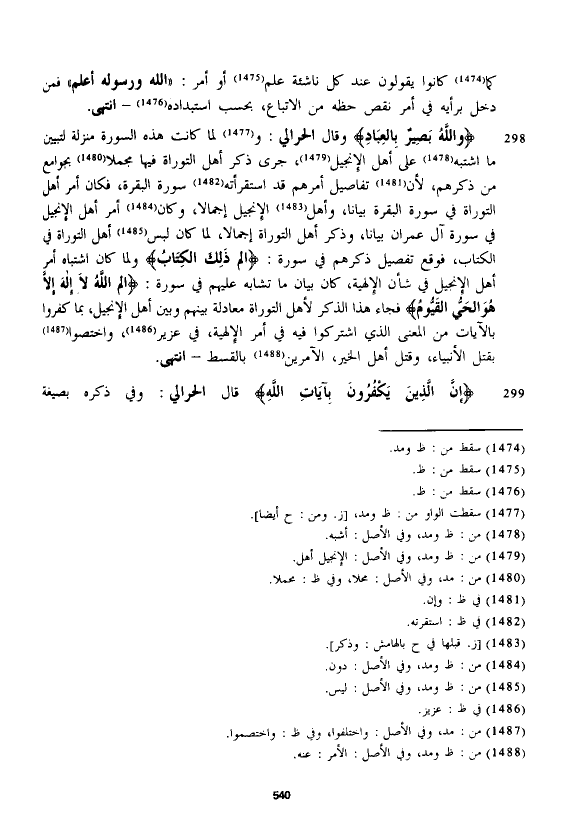 كما(1474) كانوا يقولون عند كل ناشئة علم(1475) أو أمر : «الله ورسوله أعلم» فمن
دخل برأيه في أمر نقص حظه من الاتباع، بحسب استبداده(1476) – انتهى.
298 ﴿وَاللَّهُ بَصِيرٌ بِالعِبَادِ﴾ وقال الحرالي : و(1477) لما كانت هذه السورة منزلة لتبيين
ما اشتبه(1478) على أهل الإنجيل(1479)، جرى ذكر أهل التوراة فيها مجملا(1480) بجوامع
من ذكرهم، لأن(1481) تفاصيل أمرهم قد استقرأته(1482) سورة البقرة، فكان أمر أهل
التوراة في سورة البقرة بيانا، وأهل(1483) الإنجيل إجمالا، وكان(1484) أمر أهل الإنجيل
في سورة آل عمران بيانا، وذكر أهل التوراة إجمالا، لما كان لبس(1485) أهل التوراة في
الكتاب، فوقع تفصيل ذكرهم في سورة : ﴿الم ذَلِكَ الكِتَابُ﴾ ولما كان اشتباه أمر
أهل الإنجيل في شأن الإلهية، كان بيان ما تشابه عليهم في سورة : ﴿الم اللَّهُ لاَ إِلَهَ إِلاَّ
هُوَ الحَيُّ القَيُّومُ﴾ فجاء هذا الذكر لأهل التوراة معادلة بينهم وبين أهل الإنجيل، بما كفروا
بالآيات من المعنى الذي اشتركوا فيه في أمر الإلهية، في عزير(1486)، واختصوا(1487)
بقتل الأنبياء، وقتل أهل الخير، الآمرين(1488) بالقسط – انتهى.
299 ﴿إِنَّ الَّذِينَ يَكْفُرُونَ بِآيَاتِ اللَّهِ﴾ قال الحرالي : وفي ذكره بصيغة
(1474) سقط من : ظ ومد.
(1475) سقط من : ظ.
(1476) سقط من : ظ.
(1477) سقطت الواو من : ظ ومد، [ز. ومن : ح أيضا].
(1478) من : ظ ومد، وفي الأصل : أشبه.
(1479) من : ظ ومد، وفي الأصل : الإنجيل أهل.
(1480) من : مد، وفي الأصل : محلا، وفي ظ : محملا.
(1481) في ظ : وإن.
(1482) في ظ : استقرته.
(1483) [ز. قبلها في ح بالهامش : وذكر].
(1484) من : ظ ومد، وفي الأصل : دون.
(1485) من : ظ ومد، وفي الأصل : ليس.
(1486) في ظ : عزيز.
(1487) من : مد، وفي الأصل : واختلفوا، وفي ظ : واختصموا.
(1488) من : ظ ومد، وفي الأصل : الأمر : عنه.
540